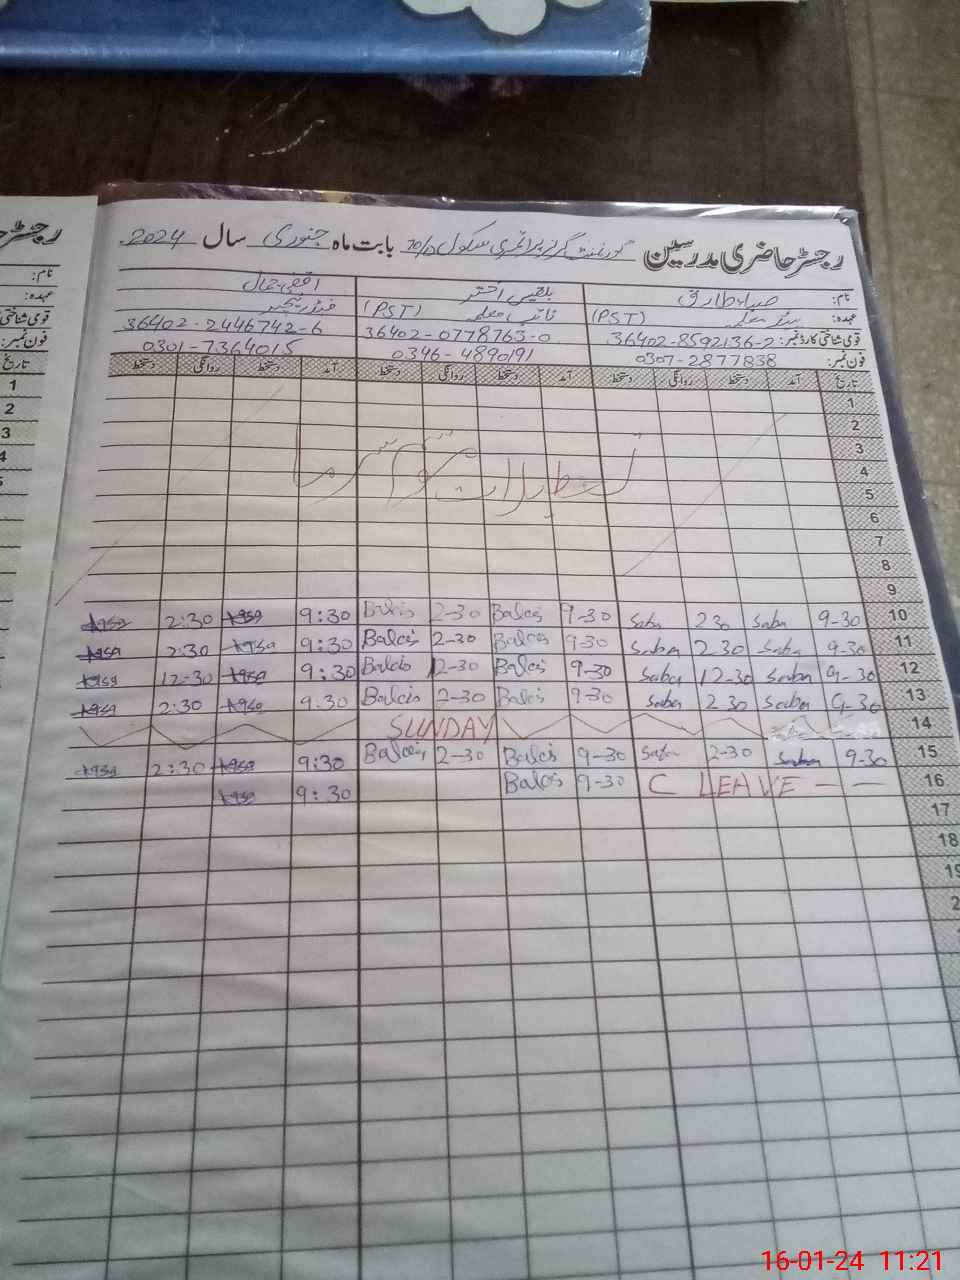 رجسٹر حاضری مدرسین گورنمنٹ گرلز پرائمری سکول 70/D بابت ماہ جنوری سال 2024
نام: صباء طارق بلقیس اختر
عہدہ: (PST) (PST)
قومی شناختی کارڈ نمبر: 36402-8592136-2 36402-0778763-0 36402-2446742-6
فون نمبر: 0307-2877838 0346-4890191 0301-7364015
تاریخ آمد دستخط روانگی دستخط آمد دستخط روانگی دستخط آمد دستخط روانگی دستخط
1
2
3
تعطیلات موسم سرما
4
5
6
7
8
9
10 9-30 Saba 2 30 Saba 9-30 Balcis 2-30 Balcis 9:30 Aqsa 2:30 Aqsa
11 9-30 Saba 2.30 Saba 9-30 Balcis 2-30 Balcis 9:30 Aqsa 2:30 Aqsa
12 9-30 Saba 12-30 Saba 9-30 Balcis 12-30 Balcis 9:30 Aqsa 12-30 Aqsa
13 9-30 Saba 2 30 Saba 9-30 Balcis 2-30 Balcis 9.30 Aqsa 2:30 Aqsa
14 SUNDAY
15 9-30 Saba 2-30 Saba 9-30 Balcis 2-30 Balcis 9:30 Aqsa 2:30 Aqsa
16 C LEAVE - - 9-30 Balcis 9:30 Aqsa
17
18
رجسٹر
نام:
عہدہ:
قومی شناختی
فون نمبر:
تاریخ
1
2
3
16-01-24 11:21